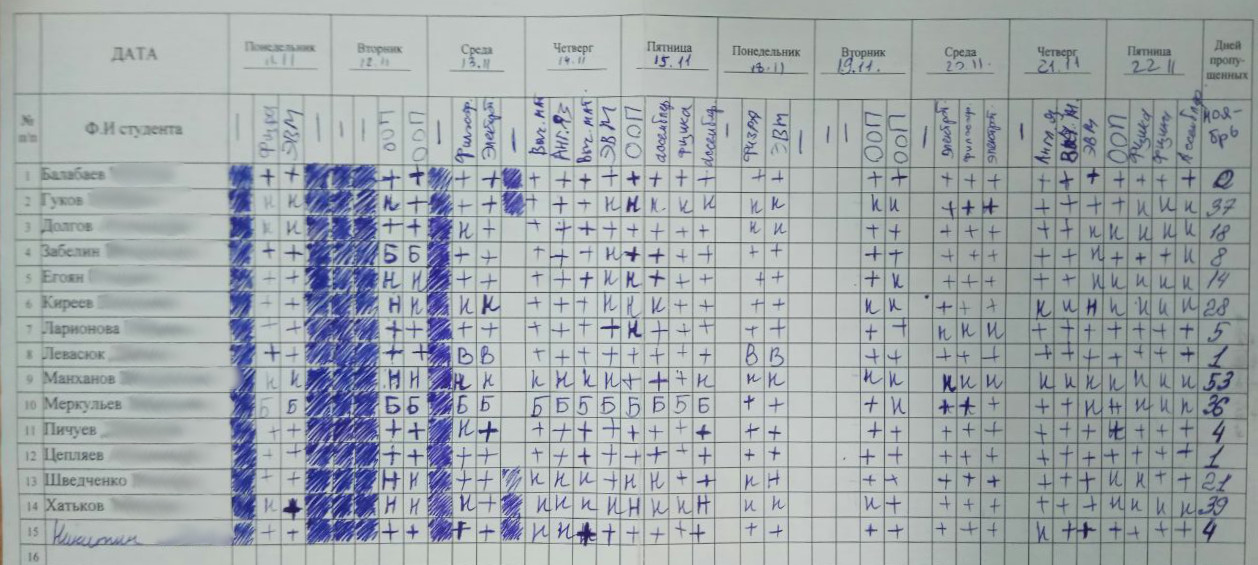 ДАТА Понедельник 11.11 Вторник 12.11 Среда 13.11 Четверг 14.11 Пятница 15.11 Понедельник 18.11 Вторник 19.11. Среда 20.11. Четверг 21.11 Пятница 22.11 Дней пропущенных
№ п/п Ф.И студента Физра ЭВМ ООП ООП Философ. Электрт Выч.мат Анг.яз Выч.мат ЭВМ ООП ассембл. физика ассембл. физра ЭВМ ООП ООП электрт. философ электрт. Англ.яз ЭВМ ООП физика физик Ассембл. ноябрь
1 Балабаев + + + + + + + + + + + + + + + + + + + + + + + + + + + + 0
2 Гуков н н н + + + + + + н н н н н н н н н + + + + + + + н н н 37
3 Долгов н н + + н + + + + + + + + + н н + + + + + + + н н н н н 18
4 Забелин + + Б Б + + + + + н + + + + + + + + + + + + + н + + + н 8
5 Егоян + + н н + + + + + н н + + + + + + н + + + + + н н н н н 14
6 Киреев + + н н н н + + + н н н + + + + н н + + + н н н н н н н 28
7 Ларионова + + + + + + + + + + н + + + + + + + н н н + + + + + + + 5
8 Левасюк + + + + В В + + + + + + + + В В + + + + + + + + + + + + 1
9 Манханов н н н н н н н н н н + + + н н н н н н н н н н н н н н н 53
10 Меркульев Б Б Б Б Б Б Б Б Б Б Б Б Б Б + + + н + + + + + н н н н н 36
11 Пичуев + + + + н + + + + + + + + + + + + + + + + + + + н + + + 4
12 Цепляев + + + + + + + + + + + + + + + + + + + + + + + + + + + + 1
13 Шведченко + + н н + + н н н + н н + + н н + + + + + + + + н н + + 21
14 Хатьков н + н н н + н н н н н н н н н н н + + + + + + + н н н н 39
15 Никитин + + + + + + н н + + + + + + + + + + + + + н + + + + + + 4
16